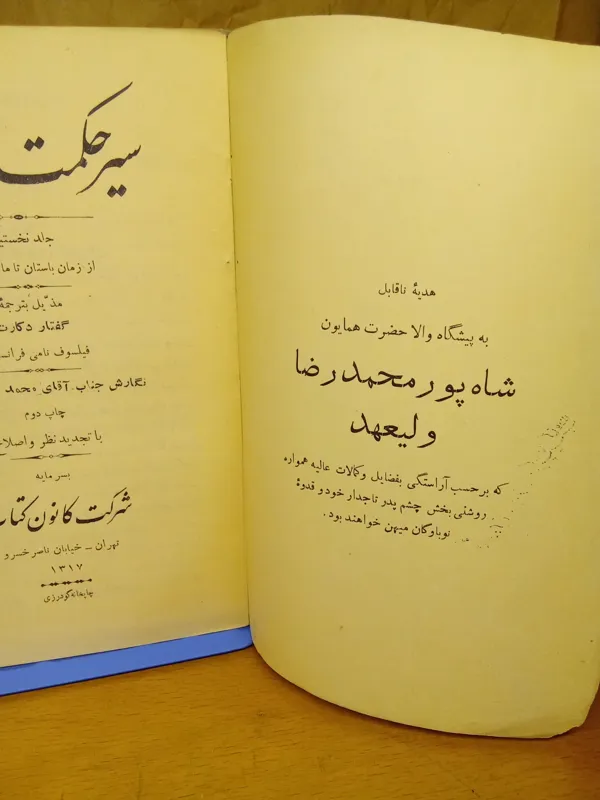 سیر حکمت
جلد نخستی
از زمان باستان تا ما
مذیّل بترجمهٔ
گفتار دکارت
فیلسوف نامی فرانس
نگارش جناب آقای محمد
چاپ دوم
با تجدید نظر و اصلاح
بسرمایه
شرکت کانون کتاب
تهران - خیابان ناصر خسرو
۱۳۱۷
چاپخانه گودرزی
هدیهٔ ناقابل
به پیشگاه والا حضرت همایون
شاه پور محمد رضا
ولیعهد
که بر حسب آراستگی بفضایل و کمالات عالیه همواره
روشنی بخش چشم پدر تاجدار خود و قدوهٔ
نوباوگان میهن خواهند بود.